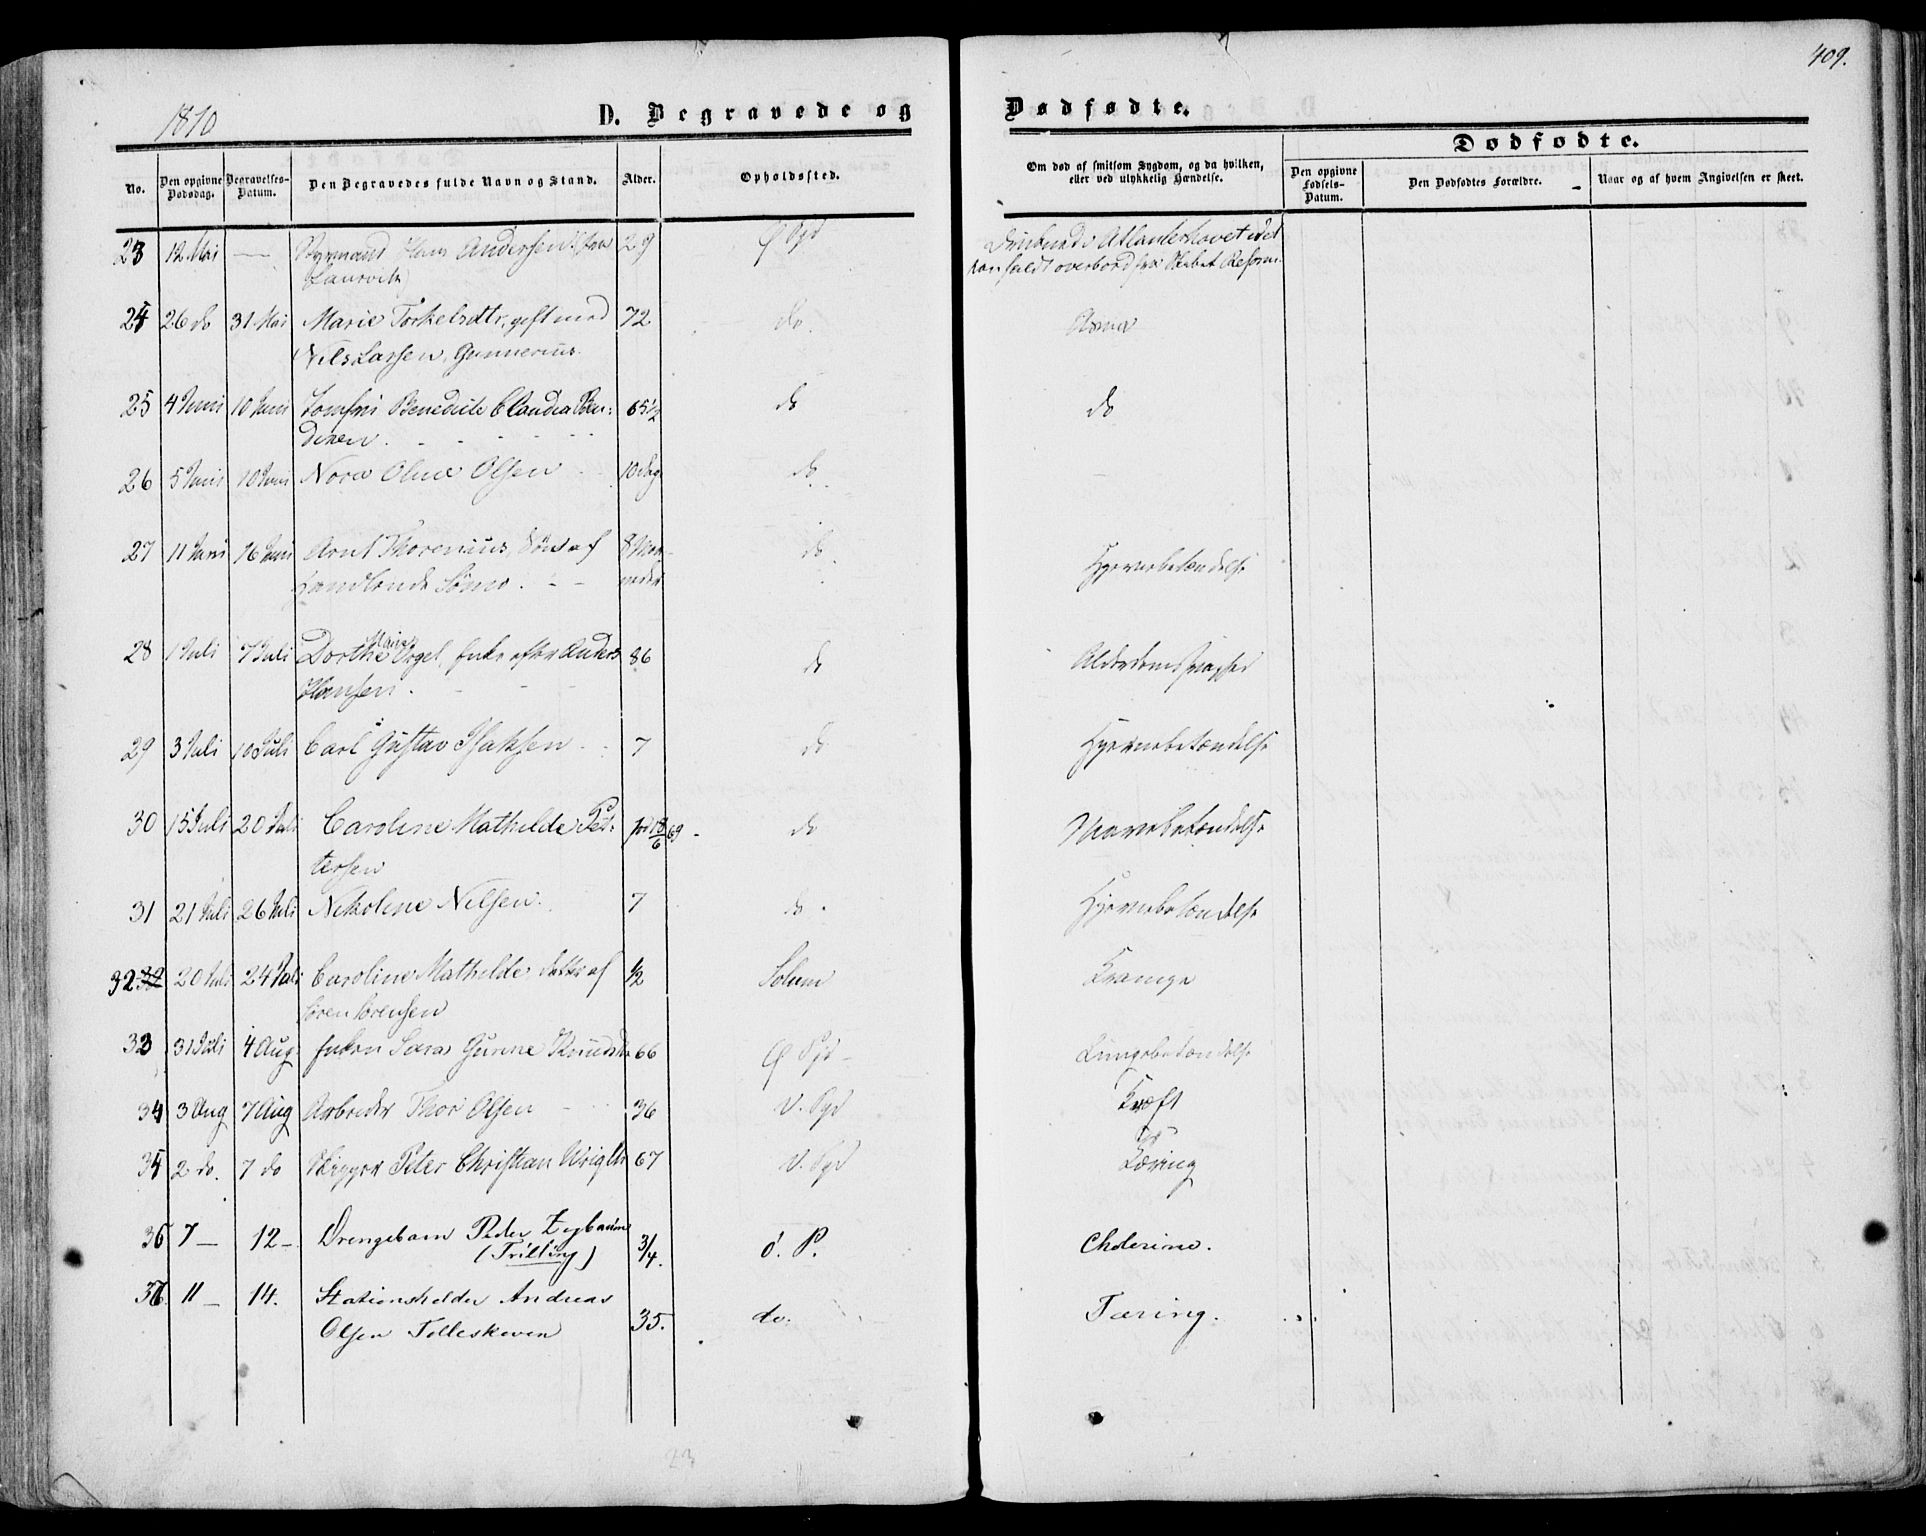 409.
1870
D. Begravede og Dødfødte.
Dødfødte.
No.
Den opgivne Dødsdag.
Begravelses-Datum.
Den Begravedes fulde Navn og Stand.
Alder.
Opholdssted.
Om død af smitsom Sygdom, og da hvilken, eller ved ulykkelig Hændelse.
Den opgivne Fødsels-Datum.
Den Dødfødtes Forældre.
Naar og af hvem Angivelsen er skeet.
23 12 Mai — Styrmand Hans Andersen (fra 29 Ø Pgd Atlanterhavet idet
Laurvik) han faldt overbord fra Skibet Reform.
24 26 do 31 Mai Marie Torkelsdtr, gift med 72 do.
Nils Larsen, Gunnerius.
25 4 Juni 10 Juni Jomfru Benedicte Claudia Ben- 65½ do do
dixen
26 5 Juni 10 Juni Nora Oline Olsen 10 Dag do
27 11 Juni 16 Juni Arnt Thorenius, Søn af 8 Maa- do Hjernebetændelse
neder
28 1 Juli 7 Juli Dorthe Marie Orgel, Enke efter Anders 86 do Alderdomssvaghed
Hansen.
29 3 Juli 10 Juli Carl Gustav Isaksen 7 do Hjernebetændelse
30 15 Juli 20 Juli Caroline Mathilde Pet- 18/6 69 do
tersen
31 21 Juli 26 Juli Nikoline Nilsen. 7 do. Hjernebetændelse
32 20 Juli 24 Juli Caroline Mathilde, Datter af ½ Solum Krampe
Søren Sørensen
33 31 Juli 4 Aug. Enken Sara Gunne Knudsdtr 66 Ø Pgd Lungebetændelse
34 3 Aug 7 Aug Arbeider Thor Olsen 36 V. Pgd Kræft
35 2 do. 7 do Skipper Peter Christian Wright 67 V. Pgd Tæring
36 7 — 12 — Drengebarn Peder Zegbaum 3/4. Ø. P. Cholerine.
(Trilling)
37 11 — 14. Stationsholder Andreas
Olsen Tolleskeven 35. do. Tæring.
23